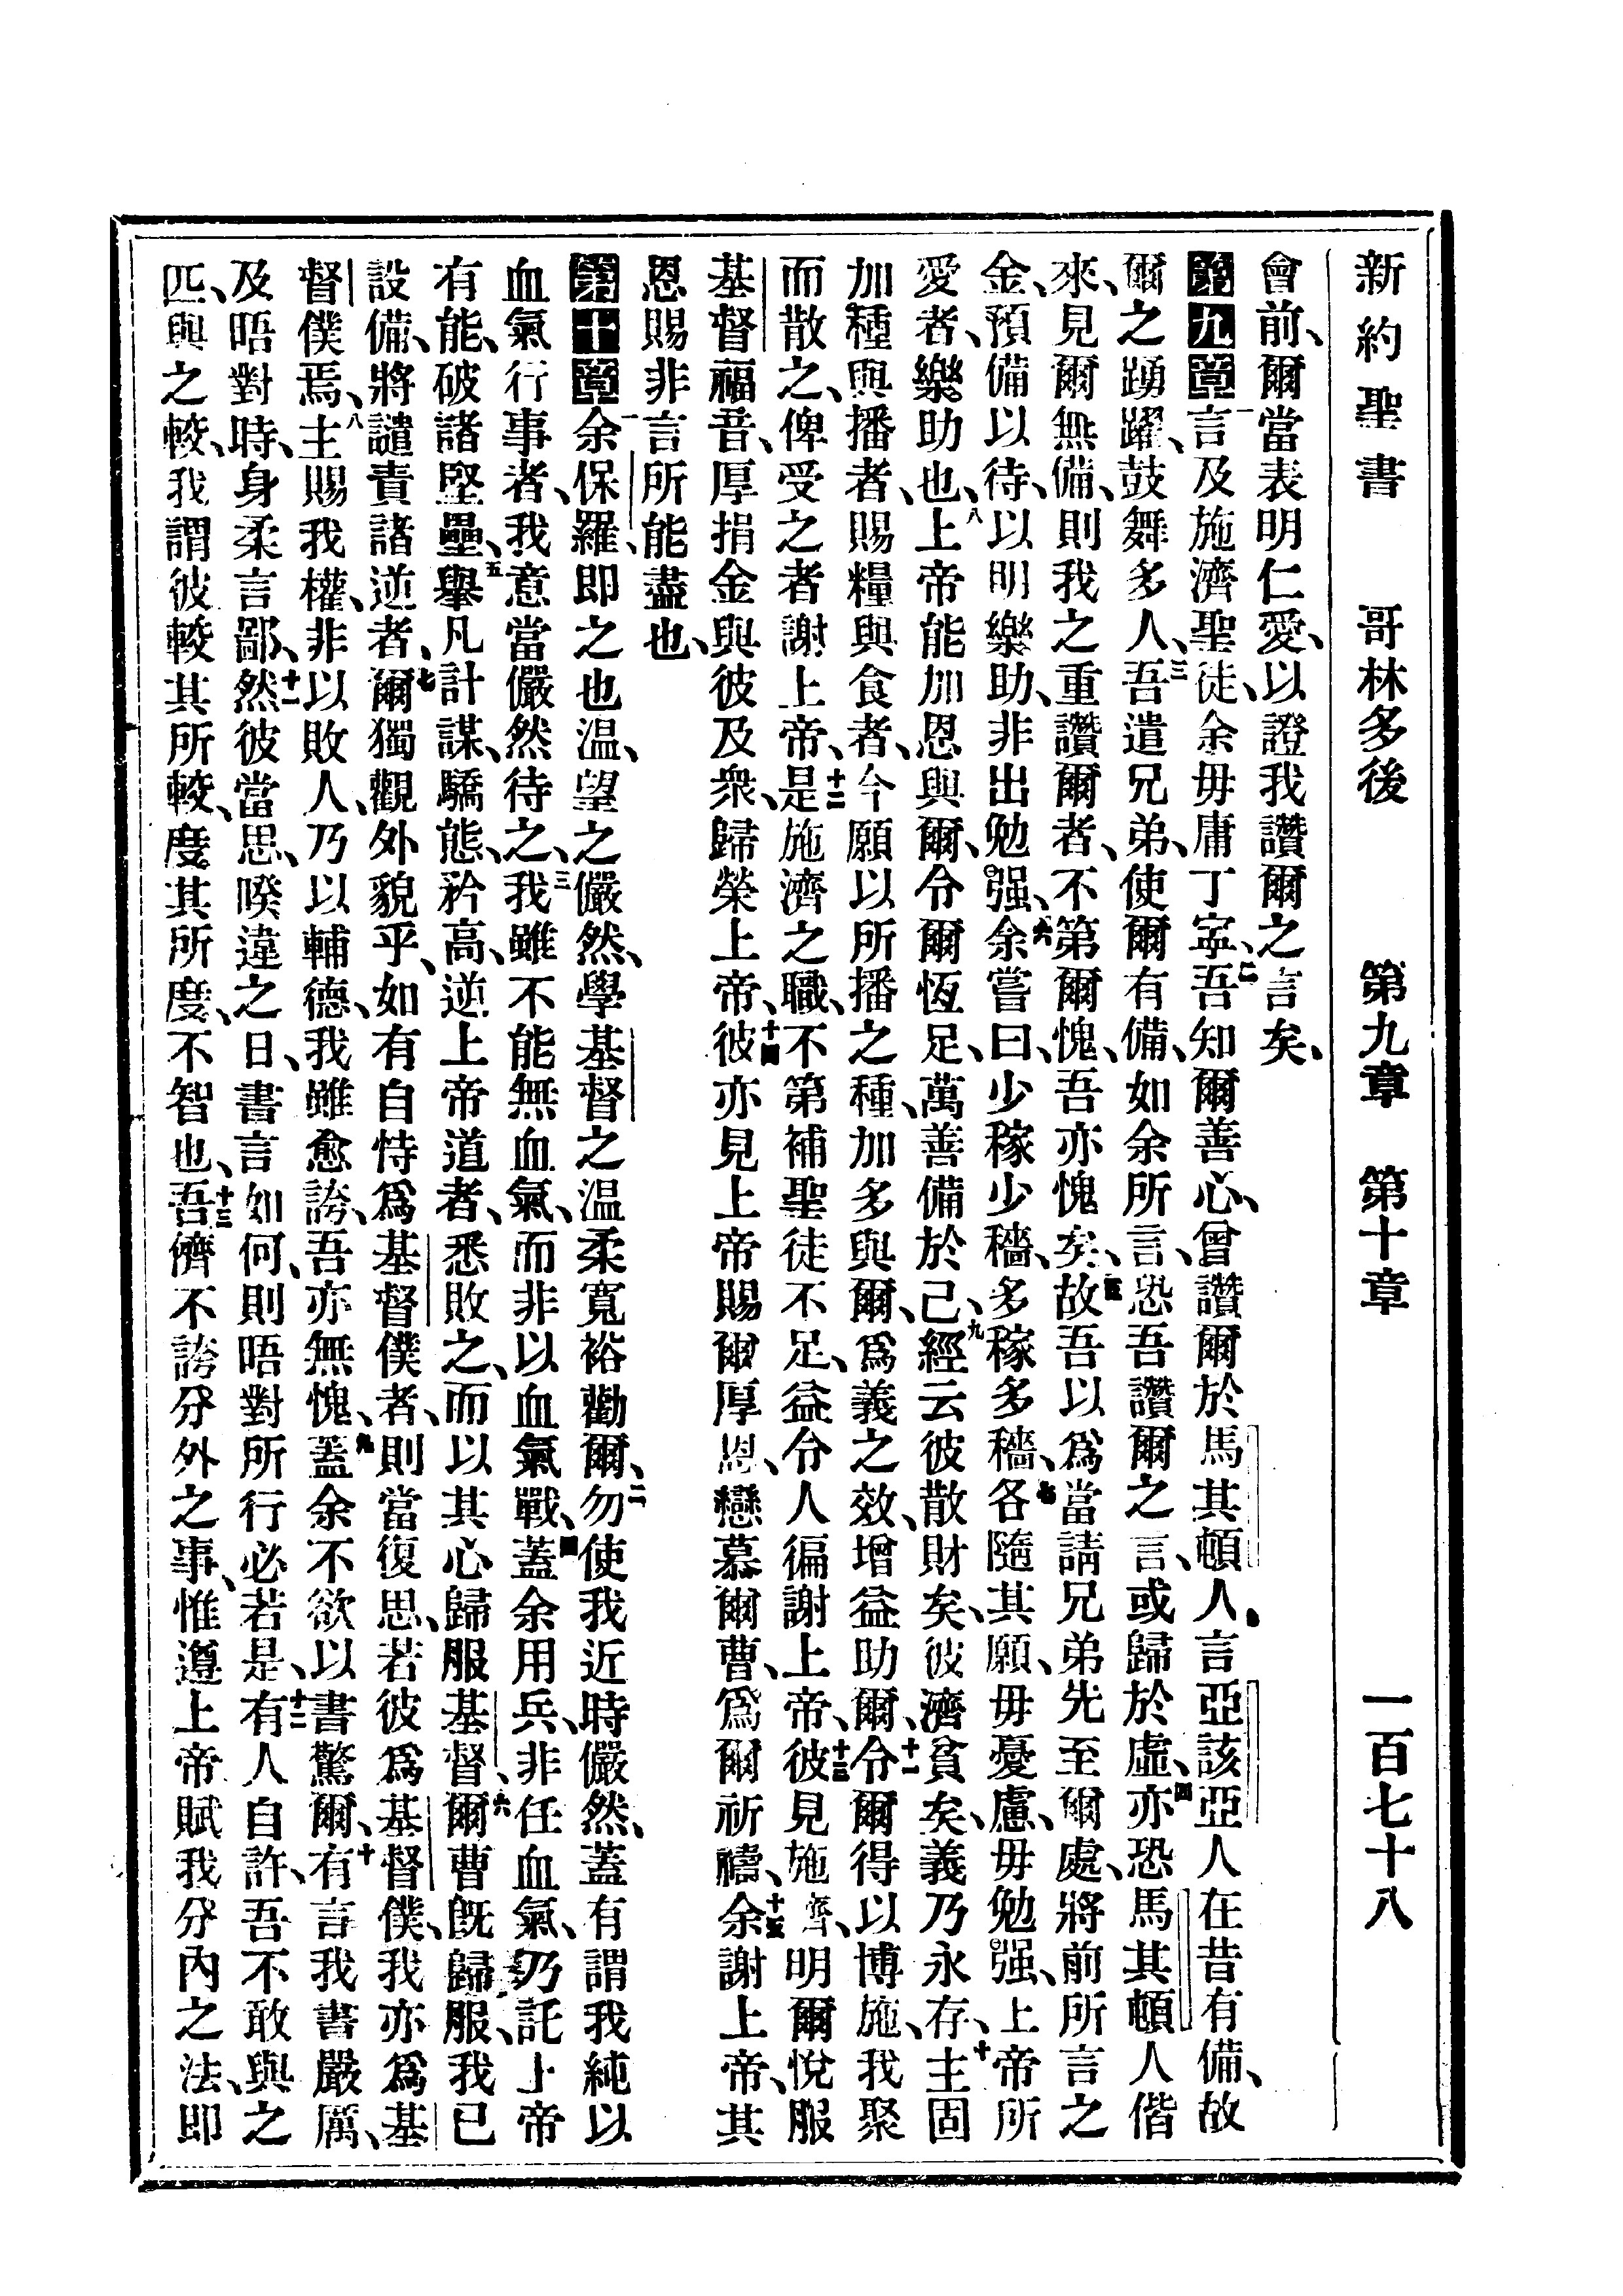 新約聖書 哥林多後 第九章 第十章 一百七十八
會前、爾當表明仁愛、以證我讚爾之言矣、
第九章一言及施濟聖徒、余毋庸丁寧、二吾知爾善心、曾讚爾於馬其頓人、言亞該亞人在昔有備、故
爾之踴躍、鼓舞多人、三吾遣兄弟、使爾有備、如余所言、恐吾讚爾之言、或歸於虛、四亦恐馬其頓人偕
來、見爾無備、則我之重讚爾者、不第爾愧、吾亦愧矣、五故吾以爲當請兄弟先至爾處、將前所言之
金、預備以待、以明樂助、非出勉强、六余嘗曰、少稼少穡、多稼多穡、七各隨其願、毋憂慮、毋勉强、上帝所
愛者、樂助也、八上帝能加恩與爾、令爾恆足、萬善備於己、九經云彼散財矣、彼濟貧矣、義乃永存、十主固
加種與播者、賜糧與食者、今願以所播之種、加多與爾、爲義之效、增益助爾、十一令爾得以博施、我聚
而散之、俾受之者謝上帝、十二是施濟之職、不第補聖徒不足、益令人徧謝上帝、十三彼見施濟、明爾悅服
基督福音、厚捐金與彼及衆、歸榮上帝、十四彼亦見上帝賜爾厚恩、戀慕爾曹、爲爾祈禱、十五余謝上帝、其
恩賜非言所能盡也、
第十章一余保羅、卽之也温、望之儼然、學基督之温柔寬裕勸爾、二勿使我近時儼然、蓋有謂我純以
血氣行事者、我意當儼然待之、三我雖不能無血氣、而非以血氣戰、四蓋余用兵、非任血氣、乃託上帝
有能、破諸堅壘、五擧凡計謀、驕態、矜高、逆上帝道者、悉敗之、而以其心歸服基督、六爾曹旣歸服、我已
設備、將譴責諸逆者、七爾獨觀外貌乎、如有自恃爲基督僕者、則當復思、若彼爲基督僕、我亦爲基
督僕焉、八主賜我權、非以敗人、乃以輔德、我雖愈誇、吾亦無愧、九蓋余不欲以書驚爾、十有言我書嚴厲、
及晤對時、身柔言鄙、十一然彼當思、暌違之日、書言如何、則晤對所行必若是、十二有人自許、吾不敢與之
匹、與之較、我謂彼較其所較、度其所度、不智也、十三吾儕不誇分外之事、惟遵上帝賦我分內之法、卽